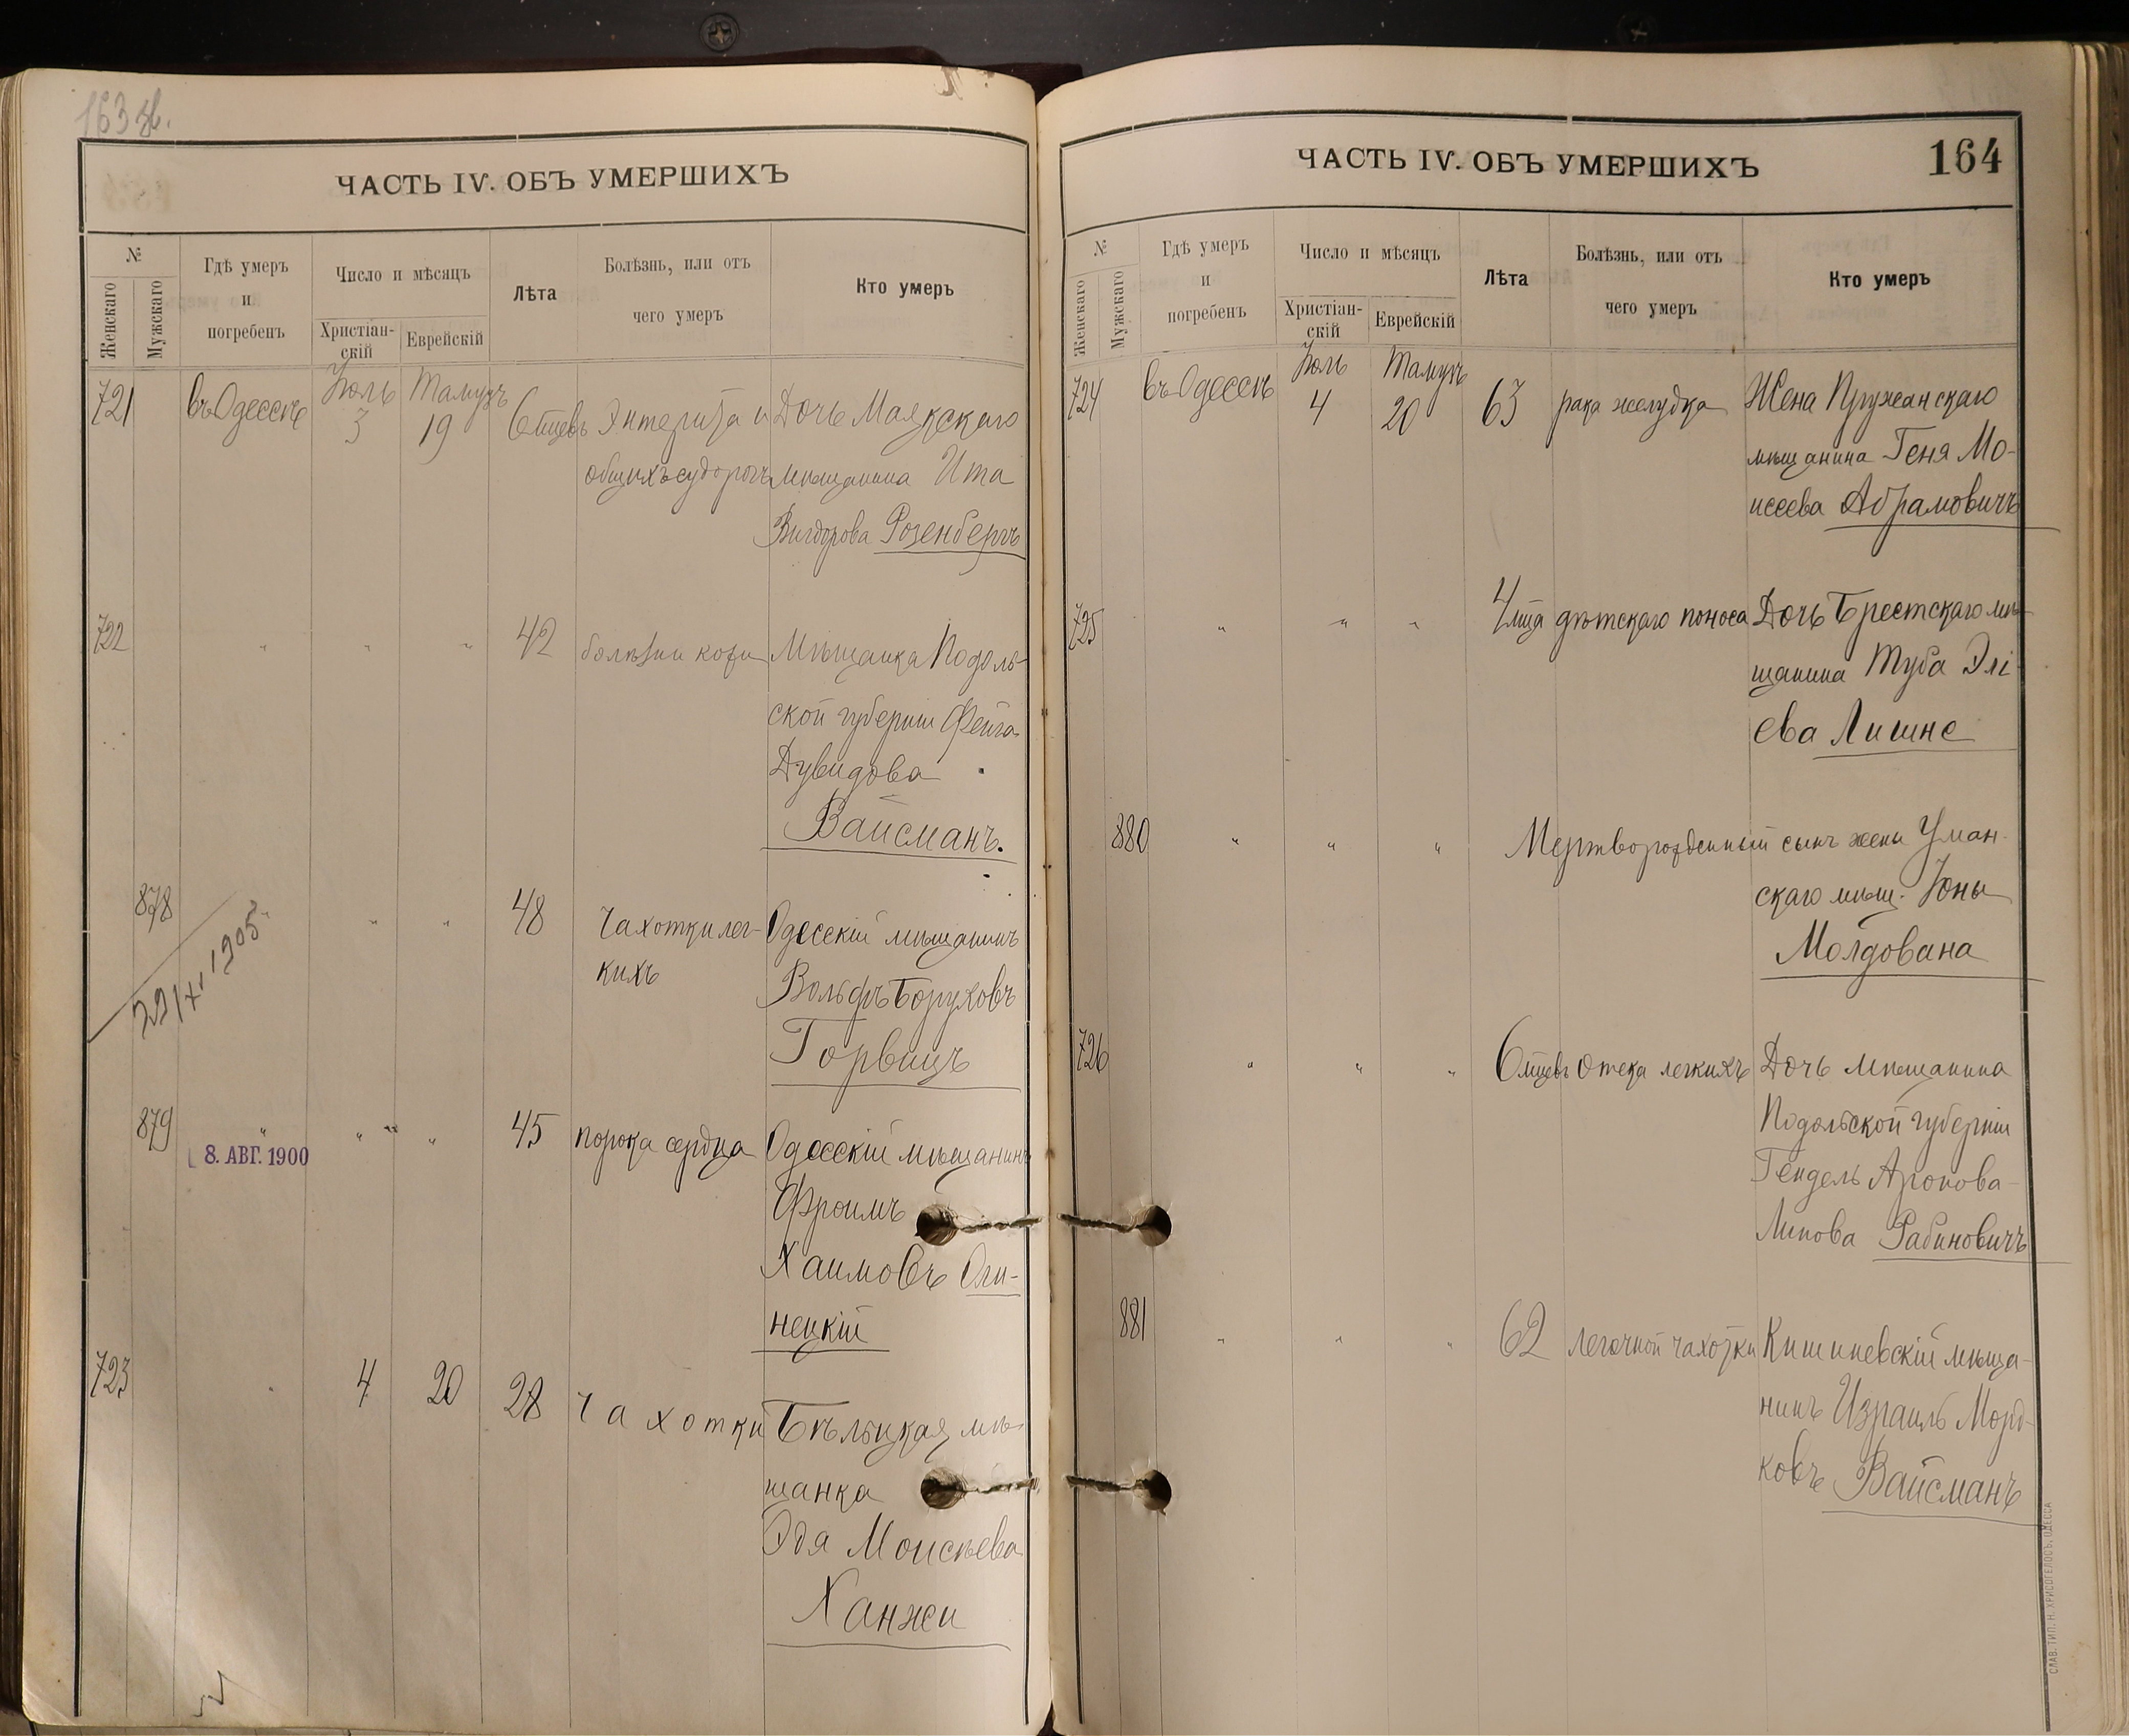 163 об.
ЧАСТЬ IV. ОБЪ УМЕРШИХЪ
№
Женскаго
Мужскаго
Гдѣ умеръ
и
погребенъ
Число и мѣсяцъ
Христіан-
скій
Еврейскій
Лѣта
Болѣзнь, или отъ
чего умеръ
Кто умеръ
721 въ Одессѣ Іюль 3 Тамузъ 19 6 мцевъ Энтерита и Дочь Маякскаго
общихъ судорогъ мѣщанина Ита
Вигдорова Розенбергъ
722 " " " 42 болѣзни кожи Мѣщанка Подоль-
ской губерніи Фейга
Дувидова
Вайсманъ.
878 " " 48 Чахотки лег- Одесскій мѣщанинъ
кихъ Вольфъ Боруховъ
Горвицъ
22/XI 1905
879 " " " 45 порока сердца Одесскій мѣщанинъ
8. АВГ. 1900
Фроимъ
Хаимовъ Оги-
нецкій
723 " 4 20 28 Чахотки Бѣльцкая мѣ-
щанка
Эдя Моисѣева
Ханжи
ЧАСТЬ IV. ОБЪ УМЕРШИХЪ 164
№
Женскаго
Мужскаго
Гдѣ умеръ
и
погребенъ
Число и мѣсяцъ
Христіан-
скій
Еврейскій
Лѣта
Болѣзнь, или отъ
чего умеръ
Кто умеръ
724 въ Одессѣ Іюль 4 Тамузъ 20 63 рака желудка Жена Пружанскаго
мѣщанина Геня Мо-
исеева Абрамовичъ
725 " " " 4 мца дѣтскаго поноса Дочь Брестскаго мѣ-
щанина Туба Элі-
ева Лишне
880 " " " Мертворожденный сынъ жены Уман-
скаго мѣщ. Іоны
Молдована
726 " " " 6 мцевъ Отека легкихъ Дочь мѣщанина
Подольской губерніи
Гендель Аронова-
Липова Рабиновичъ
881 " " " 62 легочной чахотки Кишиневскій мѣща-
нинъ Израиль Морд-
ковъ Вайсманъ
СЛАВ. ТИП. Н. ХРИСОГЕЛОСЪ, ОДЕССА